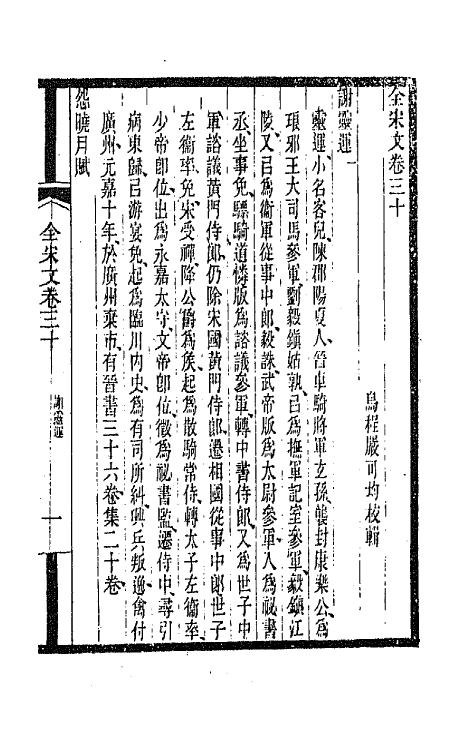 全宋文卷三十
烏程嚴可均校輯
謝靈運一
靈運小名客兒陳郡陽夏人晉車騎將軍玄孫襲封康樂公爲
琅邪王大司馬參軍劉毅鎮姑孰㠯爲撫軍記室參軍毅鎮江
陵又㠯爲衞軍從事中郎毅誅武帝版爲太尉參軍入爲祕書
丞坐事免驃騎道憐版爲諮議參軍轉中書侍郎又爲世子中
軍諮議黃門侍郎仍除宋國黃門侍郎遷相國從事中郎世子
左衞率免宋受禪降公爵爲侯起爲散騎常侍轉太子左衞率
少帝卽位出爲永嘉太守文帝卽位徵爲祕書監遷侍中尋引
病東歸㠯游宴免起爲臨川內史爲有司所糾興兵叛逸禽付
廣州元嘉十年於廣州棄市有晉書三十六卷集二十卷
怨曉月賦
全宋文卷三十
謝靈運
一